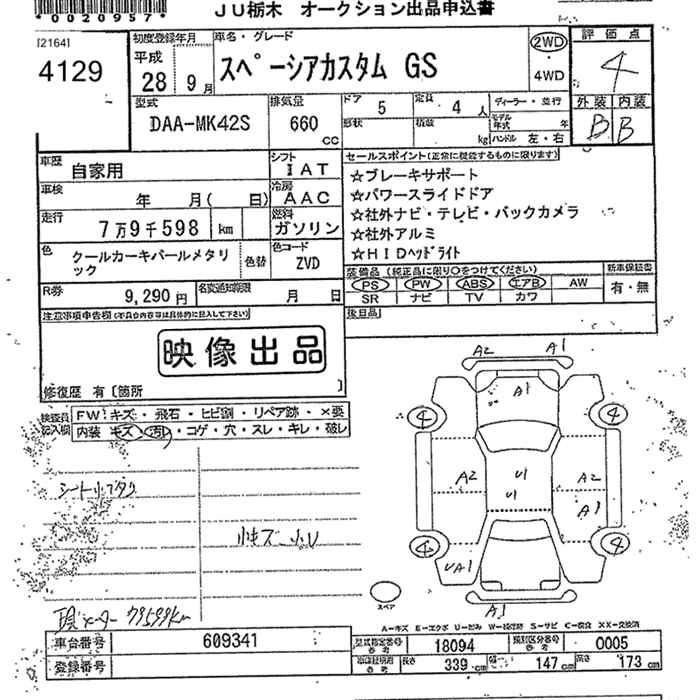 *0020957*
JU栃木 オークション出品申込書
[2164]
4129
初度登録年月
平成
28 9月
車名・グレード
スペーシアカスタム GS
2WD
4WD
評価点
4
型式
DAA-MK42S
排気量
660 cc
ドア 5
定員 4人
形状
積載 kg
ディーラー・並行
モデル年式 年
ハンドル 左・右
外装 内装
B B
車歴
自家用
シフト
IAT
車検
年 月( 日)
冷房
AAC
走行
7万9千598 km
燃料
ガソリン
色
クールカーキパールメタリック
色替
色コード
ZVD
R券
9,290円
名変通知期限
月 日
セールスポイント(正常に機能するものに限ります)
☆ブレーキサポート
☆パワースライドドア
☆社外ナビ・テレビ・バックカメラ
☆社外アルミ
☆HIDヘッドライト
装備品(純正品に限り○をつけてください)
新車保証書
PS PW ABS エアB AW
有・無
SR ナビ TV カワ
後日品
注意事項申告欄(不具合内容等は具体的に記入して下さい)
映像出品
修復歴 有〔箇所 〕
検査員記入欄
FW キズ・飛石・ヒビ割・リペア跡・×要
内装 キズ・汚レ・コゲ・穴・スレ・キレ・破レ
A2 A1
A1
4 4
A2 U1 A2
U1
A1
4 4
UA1
A1
スペア
小キズ 小U
79599km
A-キズ E-エクボ U-凹み W-補修跡 S-サビ C-腐食 XX-交換済
車台番号
609341
登録番号
型式指定番号 参考
18094
類別区分番号 参考
0005
長さ 339cm
幅 147cm
高さ 173cm